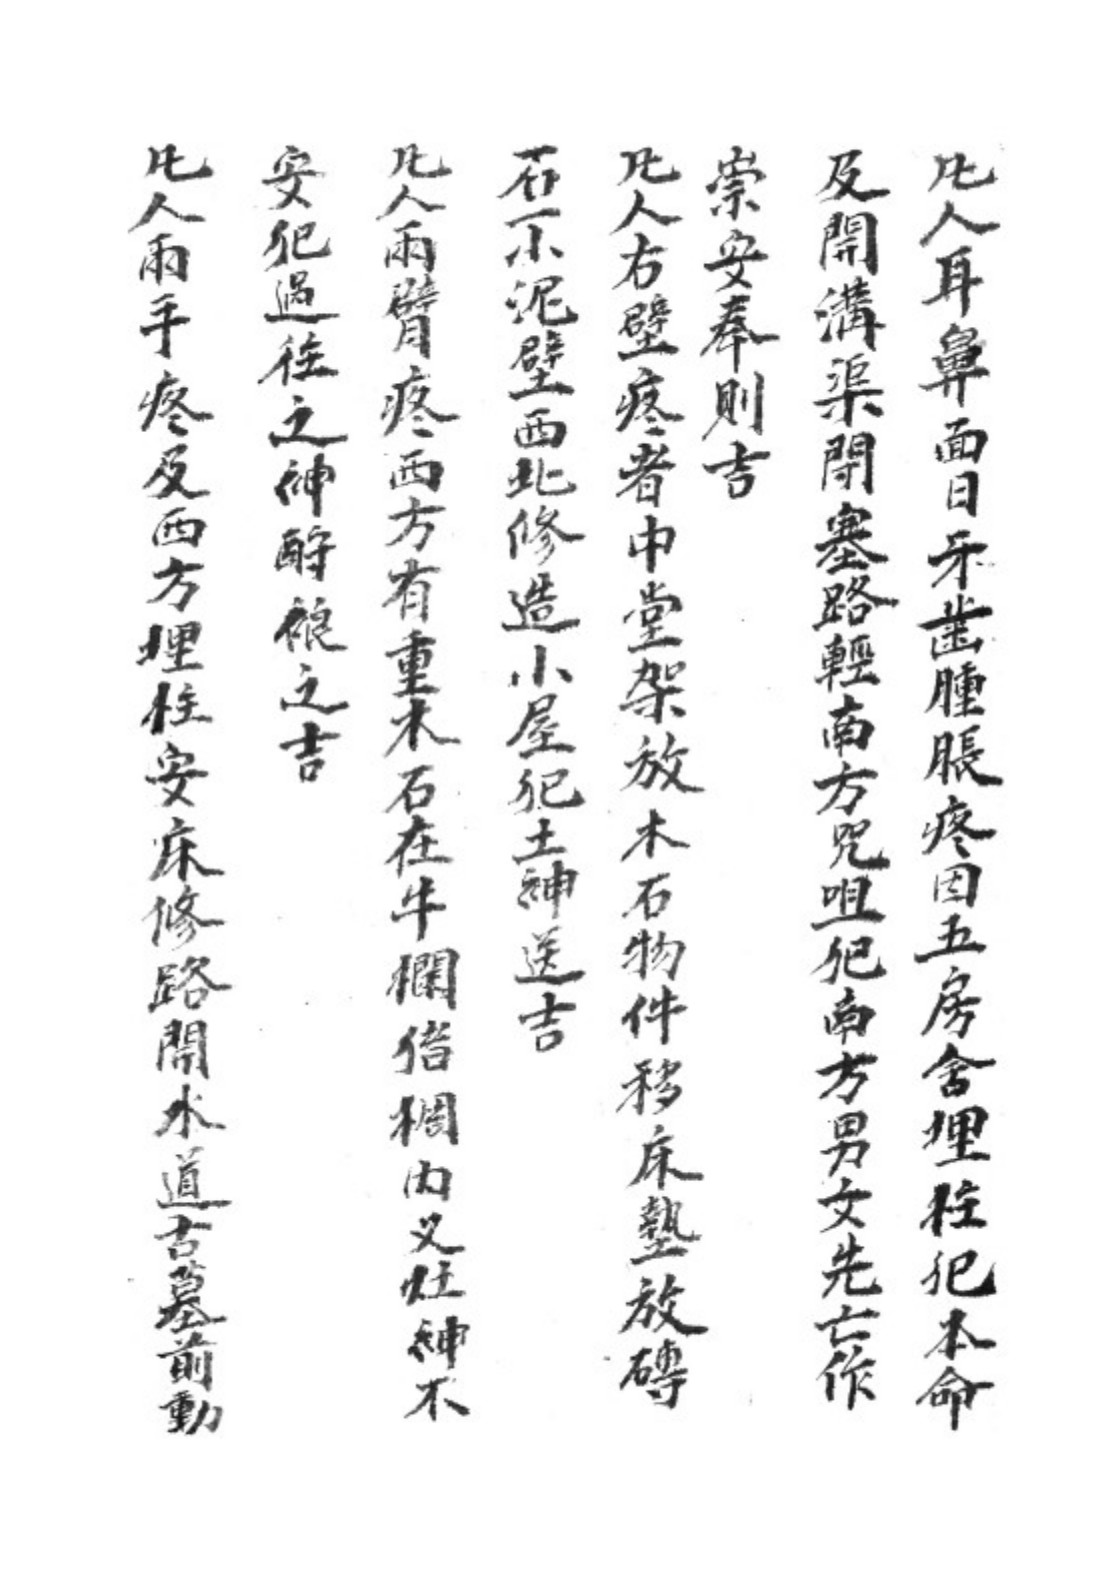 凡人耳鼻面目牙齒腫脹疼因五房舍埋柱犯本命
及開溝渠閉塞路輕南方咒咀犯南方男女先亡作
祟安奉則吉
凡人右壁疼者中堂架放木石物件移床墊放磚
石不小泥壁西北修造小屋犯土神送吉
凡人兩臂疼西方有重木石在牛欄猪棩内又灶神不
安犯過往之神酧禳之吉
凡人兩手疼及西方埋柱安床修路開水道古墓前動